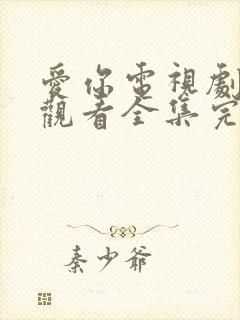 愛你電視劇
觀看全集完
秦少爺